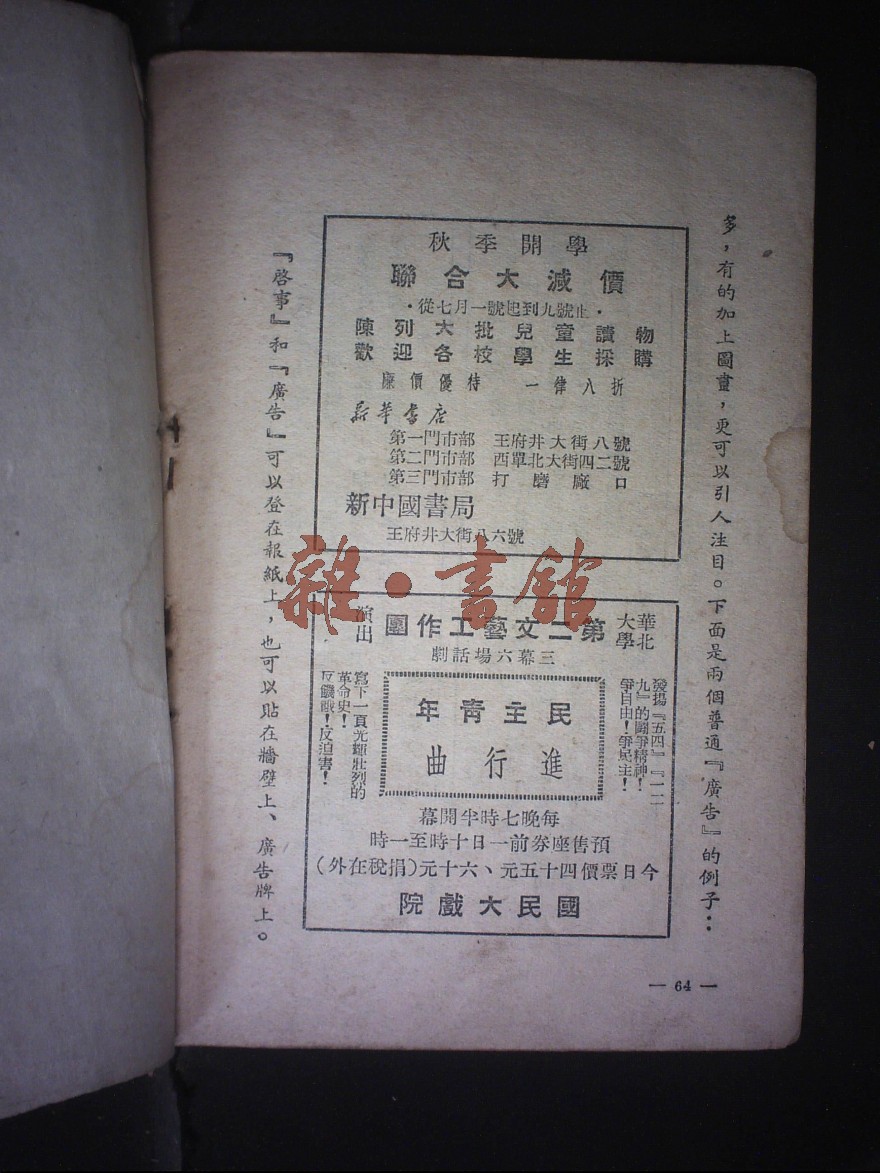 多，有的加上圖畫，更可以引人注目。下面是兩個普通『廣告』的例子：
秋季開學
聯合大減價
・從七月一號起到九號止・
陳列大批兒童讀物
歡迎各校學生採購
廉價優待 一律八折
新華書店
第一門市部 王府井大街八號
第二門市部 西單北大街四二號
第三門市部 打磨廠口
新中國書局
王府井大街八六號
華北
大學
第二文藝工作團
演出
三幕六場話劇
發揚『五四』『一二
九』的鬪爭精神！
爭自由！爭民主！
民主青年
進行曲
寫下一頁光輝壯烈的
革命史！
反饑餓！反迫害！
每晚七時半開幕
預售座券前一日十時至一時
今日票價四十五元、六十元（捐稅在外）
國民大戲院
『啓事』和『廣告』可以登在報紙上，也可以貼在牆壁上、廣告牌上。
— 64 —
雜・書館